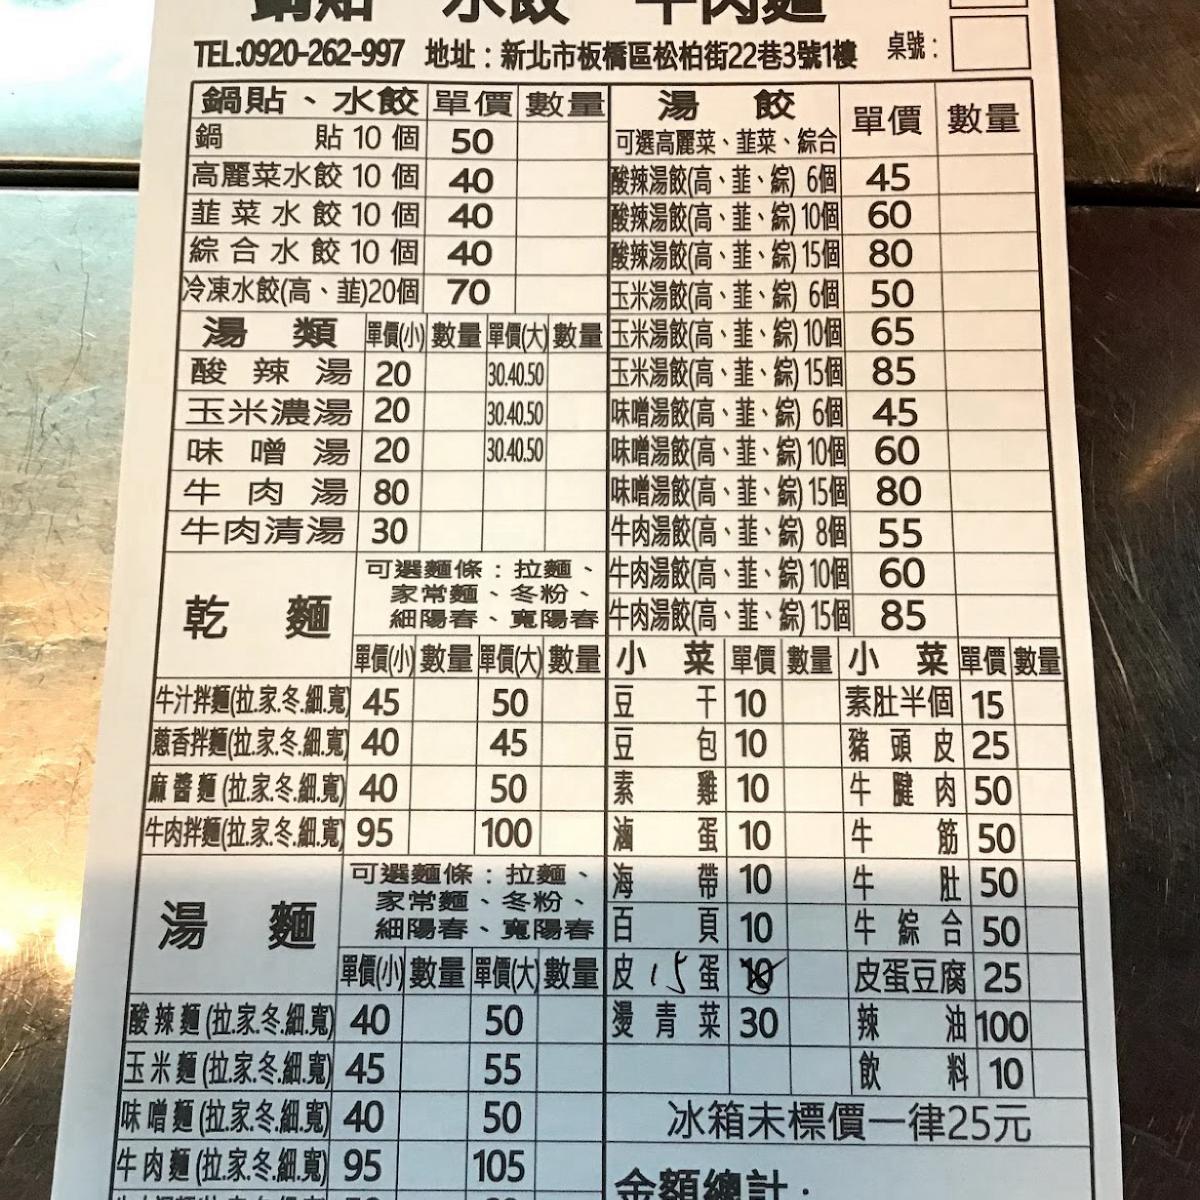 鍋貼 水餃 牛肉麵
TEL:0920-262-997 地址：新北市板橋區松柏街22巷3號1樓 桌號：
鍋貼、水餃 單價 數量
鍋貼10個 50
高麗菜水餃10個 40
韮菜水餃10個 40
綜合水餃10個 40
冷凍水餃(高、韮)20個 70
湯類 單價(小) 數量 單價(大) 數量
酸辣湯 20 30.40.50
玉米濃湯 20 30.40.50
味噌湯 20 30.40.50
牛肉湯 80
牛肉清湯 30
乾麵 可選麵條：拉麵、
家常麵、冬粉、
細陽春、寬陽春
單價(小) 數量 單價(大) 數量
牛汁拌麵(拉.家.冬.細.寬) 45 50
蔥香拌麵(拉.家.冬.細.寬) 40 45
麻醬麵(拉.家.冬.細.寬) 40 50
牛肉拌麵(拉.家.冬.細.寬) 95 100
湯麵 可選麵條：拉麵、
家常麵、冬粉、
細陽春、寬陽春
單價(小) 數量 單價(大) 數量
酸辣麵(拉.家.冬.細.寬) 40 50
玉米麵(拉.家.冬.細.寬) 45 55
味噌麵(拉.家.冬.細.寬) 40 50
牛肉麵(拉.家.冬.細.寬) 95 105
湯餃 單價 數量
可選高麗菜、韮菜、綜合
酸辣湯餃(高、韮、綜) 6個 45
酸辣湯餃(高、韮、綜)10個 60
酸辣湯餃(高、韮、綜)15個 80
玉米湯餃(高、韮、綜) 6個 50
玉米湯餃(高、韮、綜)10個 65
玉米湯餃(高、韮、綜)15個 85
味噌湯餃(高、韮、綜) 6個 45
味噌湯餃(高、韮、綜)10個 60
味噌湯餃(高、韮、綜)15個 80
牛肉湯餃(高、韮、綜) 8個 55
牛肉湯餃(高、韮、綜)10個 60
牛肉湯餃(高、韮、綜)15個 85
小菜 單價 數量 小菜 單價 數量
豆干 10 素肚半個 15
豆包 10 豬頭皮 25
素雞 10 牛腱肉 50
滷蛋 10 牛筋 50
海帶 10 牛肚 50
百頁 10 牛綜合 50
皮蛋 15 10 皮蛋豆腐 25
燙青菜 30 辣油 100
飲料 10
冰箱未標價一律25元
金額總計：